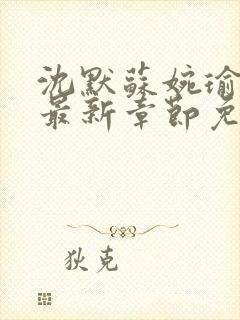 沈默蘇婉瑜
最新章節免
狄克